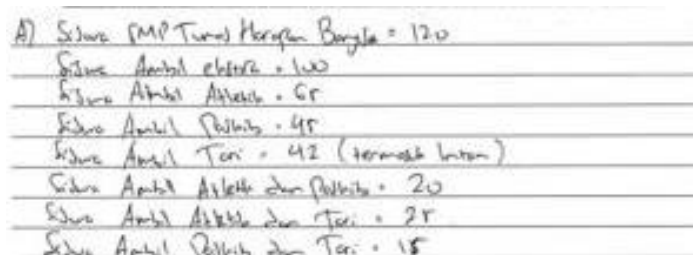 A) Siswa SMP Tunas Harapan Bangsa = 120
Siswa Ambil ekstra = 100
Siswa Ambil Atletik = 65
Siswa Ambil Paskib = 45
Siswa Ambil Tari = 42 (termasuk Intan)
Siswa Ambil Atletik dan Paskib = 20
Siswa Ambil Atletik dan Tari = 25
Siswa Ambil Paskib dan Tari = 15